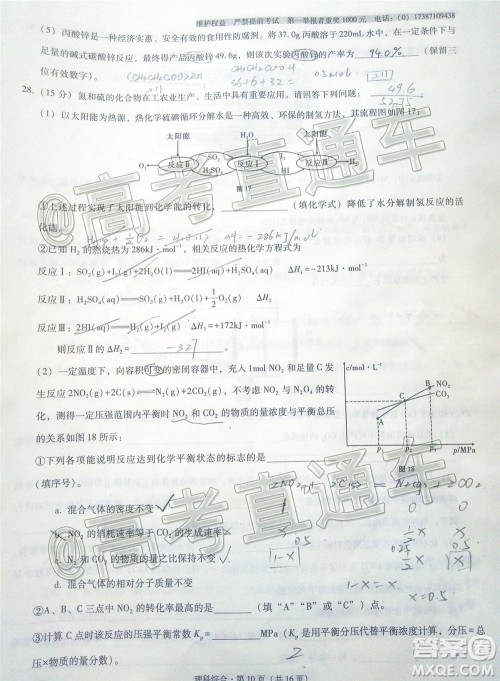 维护权益　严禁提前考试　第一举报者重奖1000元　电话：(0) 17387109438
(5) 丙酸锌是一种经济实惠、安全有效的食用性防腐剂。将37.0g丙酸溶于220mL水中，在一定条件下
与足量的碱式碳酸锌反应，最终得产品丙酸锌49.6g，则实验中丙酸锌的产率为 94.0% (保留三
位有效数字)。
28. (15分) 氮和硫的化合物在工农业生产、生活中具有重要应用。请回答下列问题：
49.6
52.75
(1) 以太阳能为热源，热化学硫碘循环分解水是一种高效、环保的制氢方法，其流程图如图17：
太阳能　H₂O　太阳能
O₂　反应Ⅱ　SO₂　H₂SO₄　反应Ⅰ　反应Ⅲ　H₂
图17
①上述过程实现了太阳能到化学能的转化，______(填化学式) 降低了水分解制氢反应的活
化能。
②已知H₂的燃烧热为286kJ·mol⁻¹，相关反应的热化学方程式为
反应Ⅰ：SO₂(g)+I₂(g)+2H₂O(l)═2HI(aq)+H₂SO₄(aq)　ΔH₁=−213kJ·mol⁻¹
反应Ⅱ：H₂SO₄(aq)═SO₂(g)+H₂O(l)+1/2O₂(g)　ΔH₂
反应Ⅲ：2HI(aq)═H₂(g)+I₂(g)　ΔH₃=+172kJ·mol⁻¹
则反应Ⅱ的ΔH₂= -327 。
(2) 一定温度下，向容积可变的密闭容器中，充入1mol NO₂和足量C发
生反应2NO₂(g)+2C(s)⇌N₂(g)+2CO₂(g)，不考虑NO₂与N₂O₄之间的转
化，测得一定压强范围内平衡时NO₂和CO₂的物质的量浓度与平衡总压
的关系如图18所示：
c/mol·L⁻¹
B NO₂
C CO₂
A
P₁ P₂ p/MPa
图18
①下列各项能说明反应达到化学平衡状态的标志的是
(填序号)。
a. 混合气体的密度不变
b. NO₂的消耗速率等于CO₂的生成速率
c. NO₂和N₂的物质的量之比保持不变
d. 混合气体的相对分子质量不变
x=0.5
②A、B、C三点中NO₂的转化率最高的是______(填“A”“B”或“C”)点。
③计算C点时该反应的压强平衡常数Kp=______MPa(Kp是用平衡分压代替平衡浓度计算，分压=总
压×物质的量分数)。
2
理科综合·第10页(共16页)
高考直通车
高考直通车
答案圈